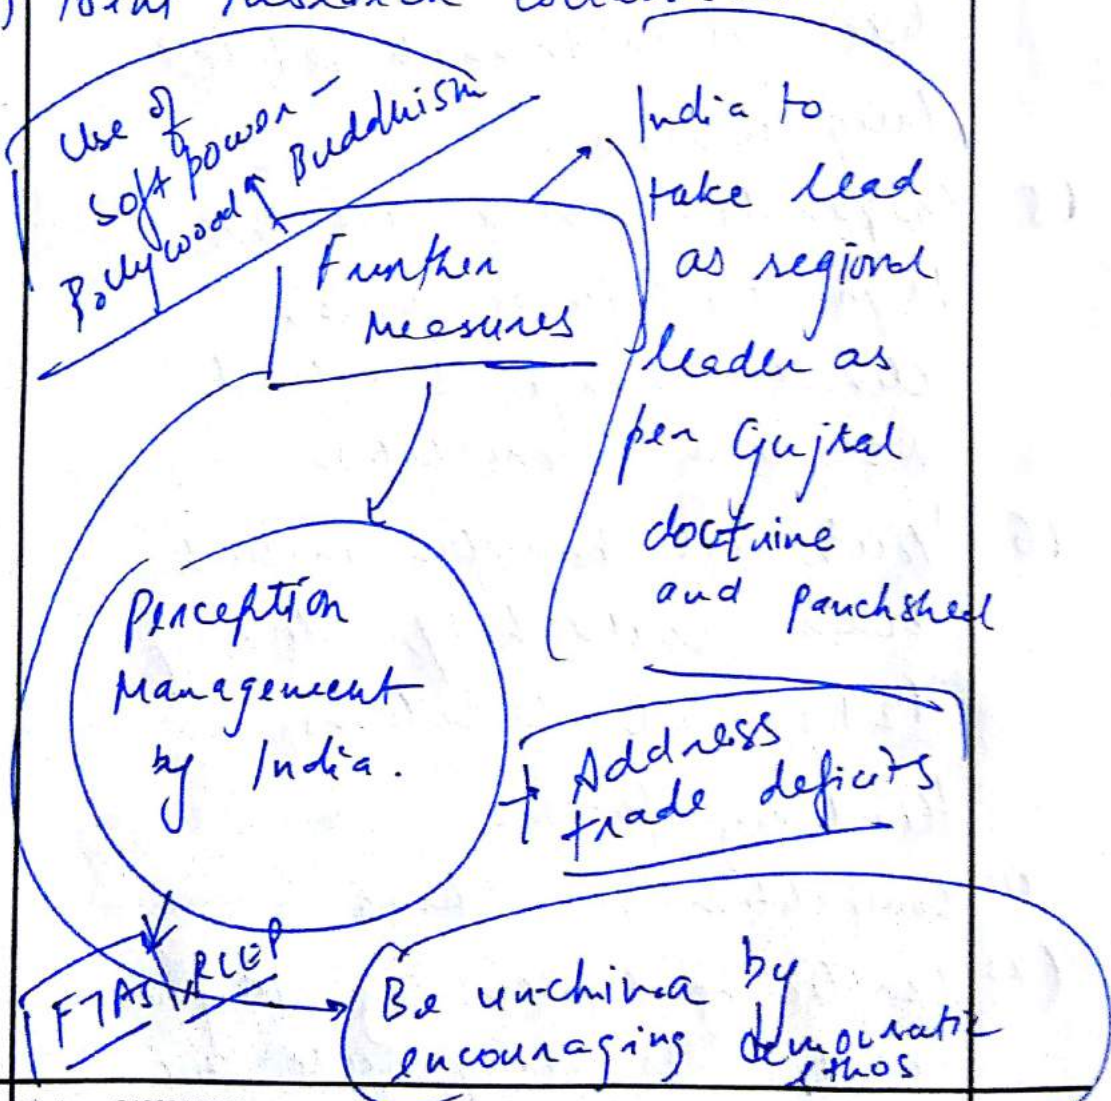 Use of
soft power -
Bollywood, Buddhism
Further
Measures
India to
take lead
as regional
leader as
per Gujral
doctrine
and Panchsheel
Perception
Management
by India.
Address
trade deficits
FTAs, RCEP
Be un-china by
encouraging democratic
ethos